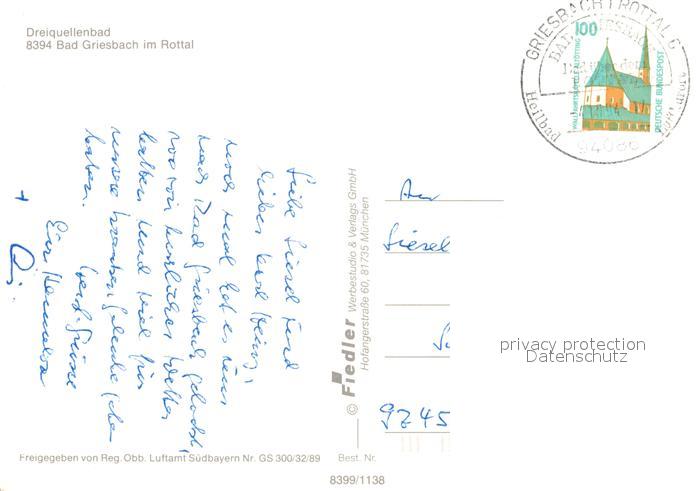 Dreiquellenbad
8394 Bad Griesbach im Rottal
GRIESBACH I ROTTAL
94086
Heilbad
100
DEUTSCHE BUNDESPOST
Liebe Liesel und
lieber Karl Heinz,
noch mal hat es uns
nach Bad Griesbach gelockt,
wo wir herrliches Wetter
hatten und viel für
unsere
haben.
Herzl. Grüsse
Eure Hannelore
+
An
Liesel
9245
© Fiedler Werbestudio & Verlags GmbH
Hofangerstraße 60, 81735 München
privacy protection
Datenschutz
Freigegeben von Reg. Obb. Luftamt Südbayern Nr. GS 300/32/89 Best. Nr.
8399/1138